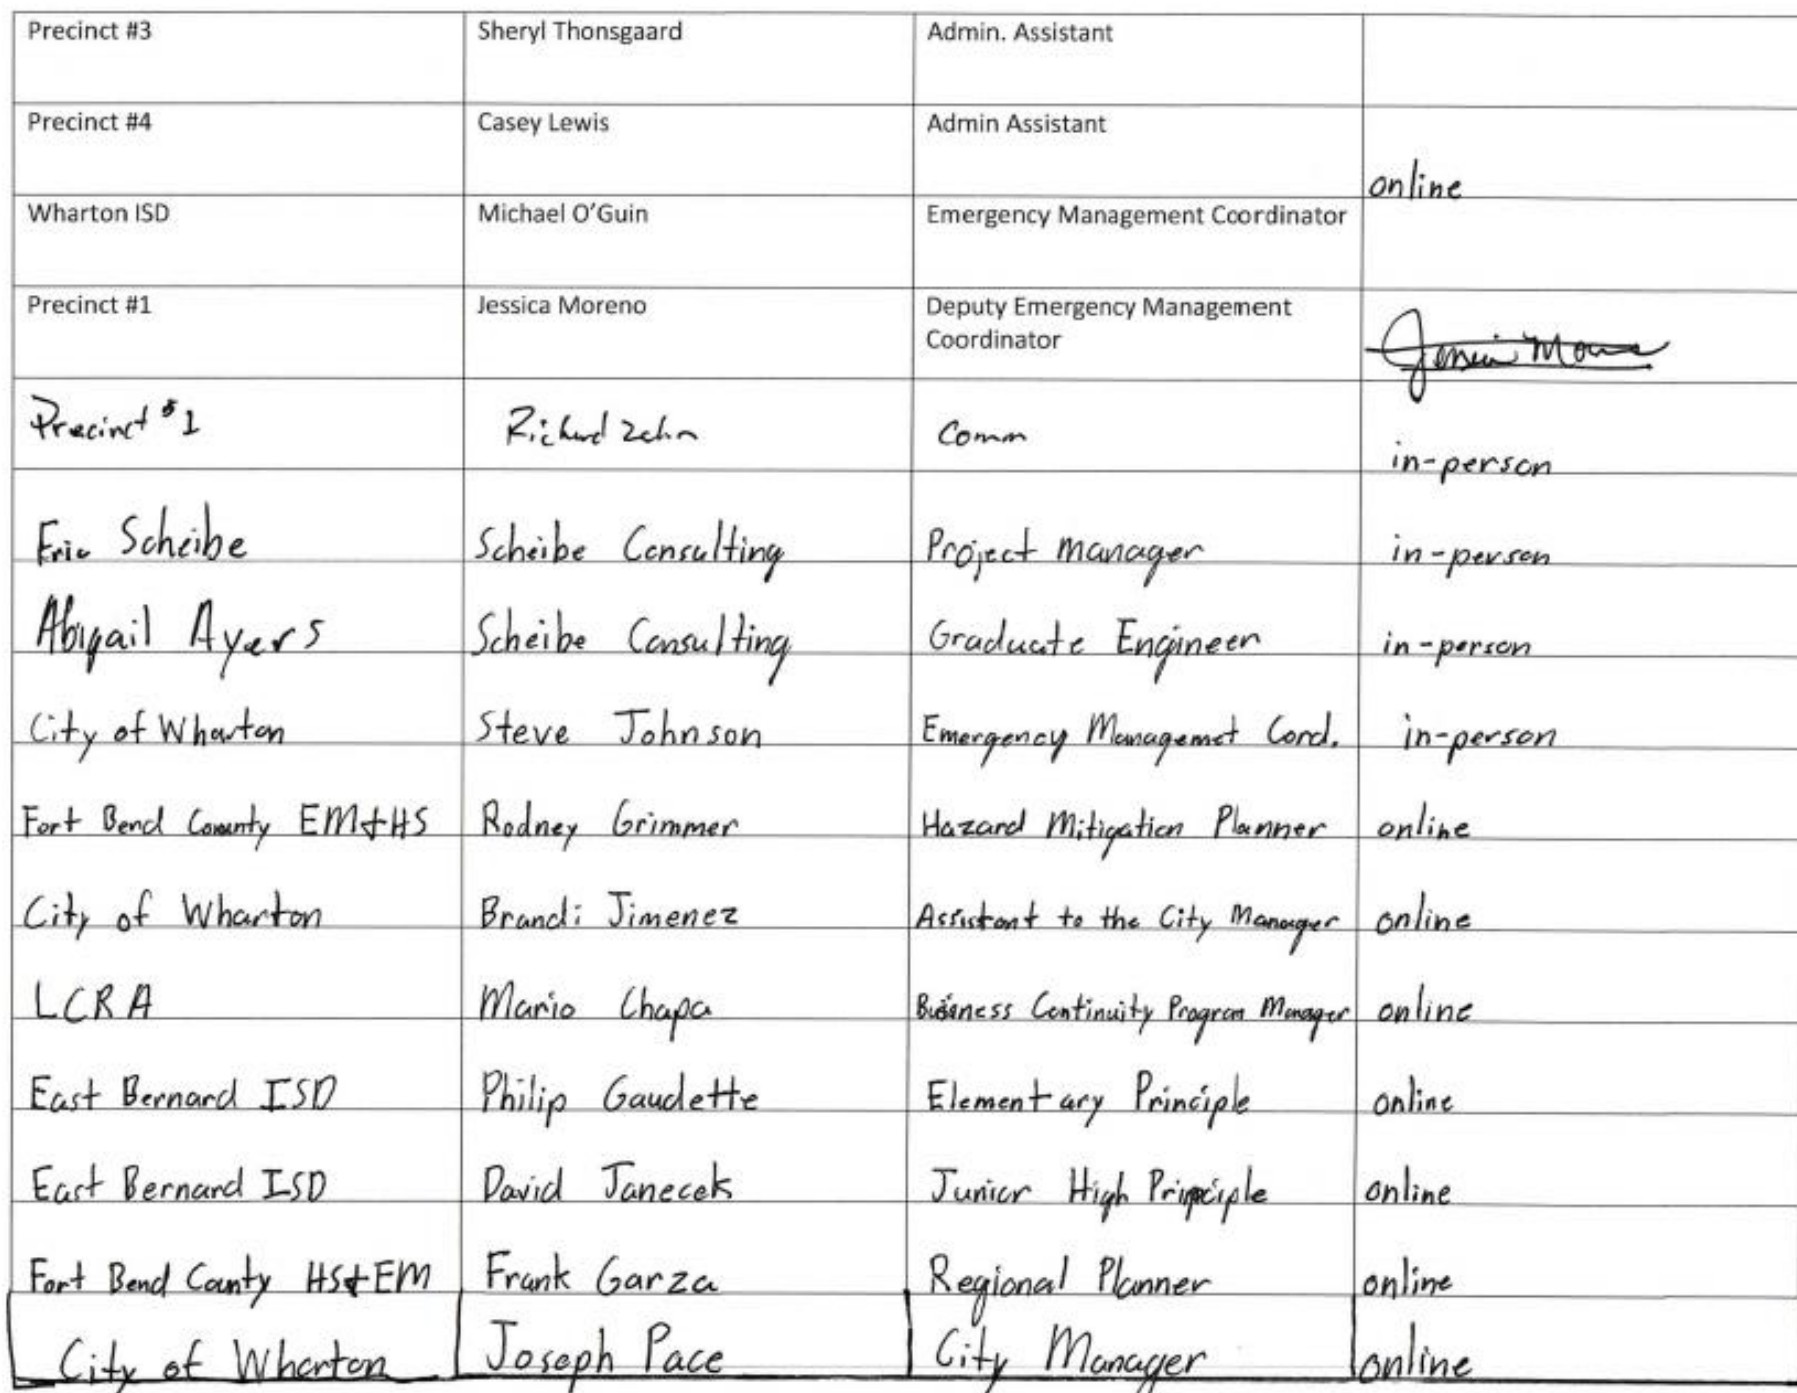 Precinct #3 Sheryl Thonsgaard Admin. Assistant
Precinct #4 Casey Lewis Admin Assistant online
Wharton ISD Michael O'Guin Emergency Management Coordinator
Precinct #1 Jessica Moreno Deputy Emergency Management
Coordinator
Precinct #1 Richard Zahn Comm in-person
Eric Scheibe Scheibe Consulting Project manager in-person
Abigail Ayers Scheibe Consulting Graduate Engineer in-person
City of Wharton Steve Johnson Emergency Managemet Cord. in-person
Fort Bend County EM&HS Rodney Grimmer Hazard Mitigation Planner online
City of Wharton Brandi Jimenez Assistant to the City Manager online
LCRA Mario Chapa Business Continuity Program Manager online
East Bernard ISD Philip Gaudette Elementary Principle online
East Bernard ISD David Janecek Junior High Principle online
Fort Bend County HS&EM Frank Garza Regional Planner online
City of Wharton Joseph Pace City Manager online